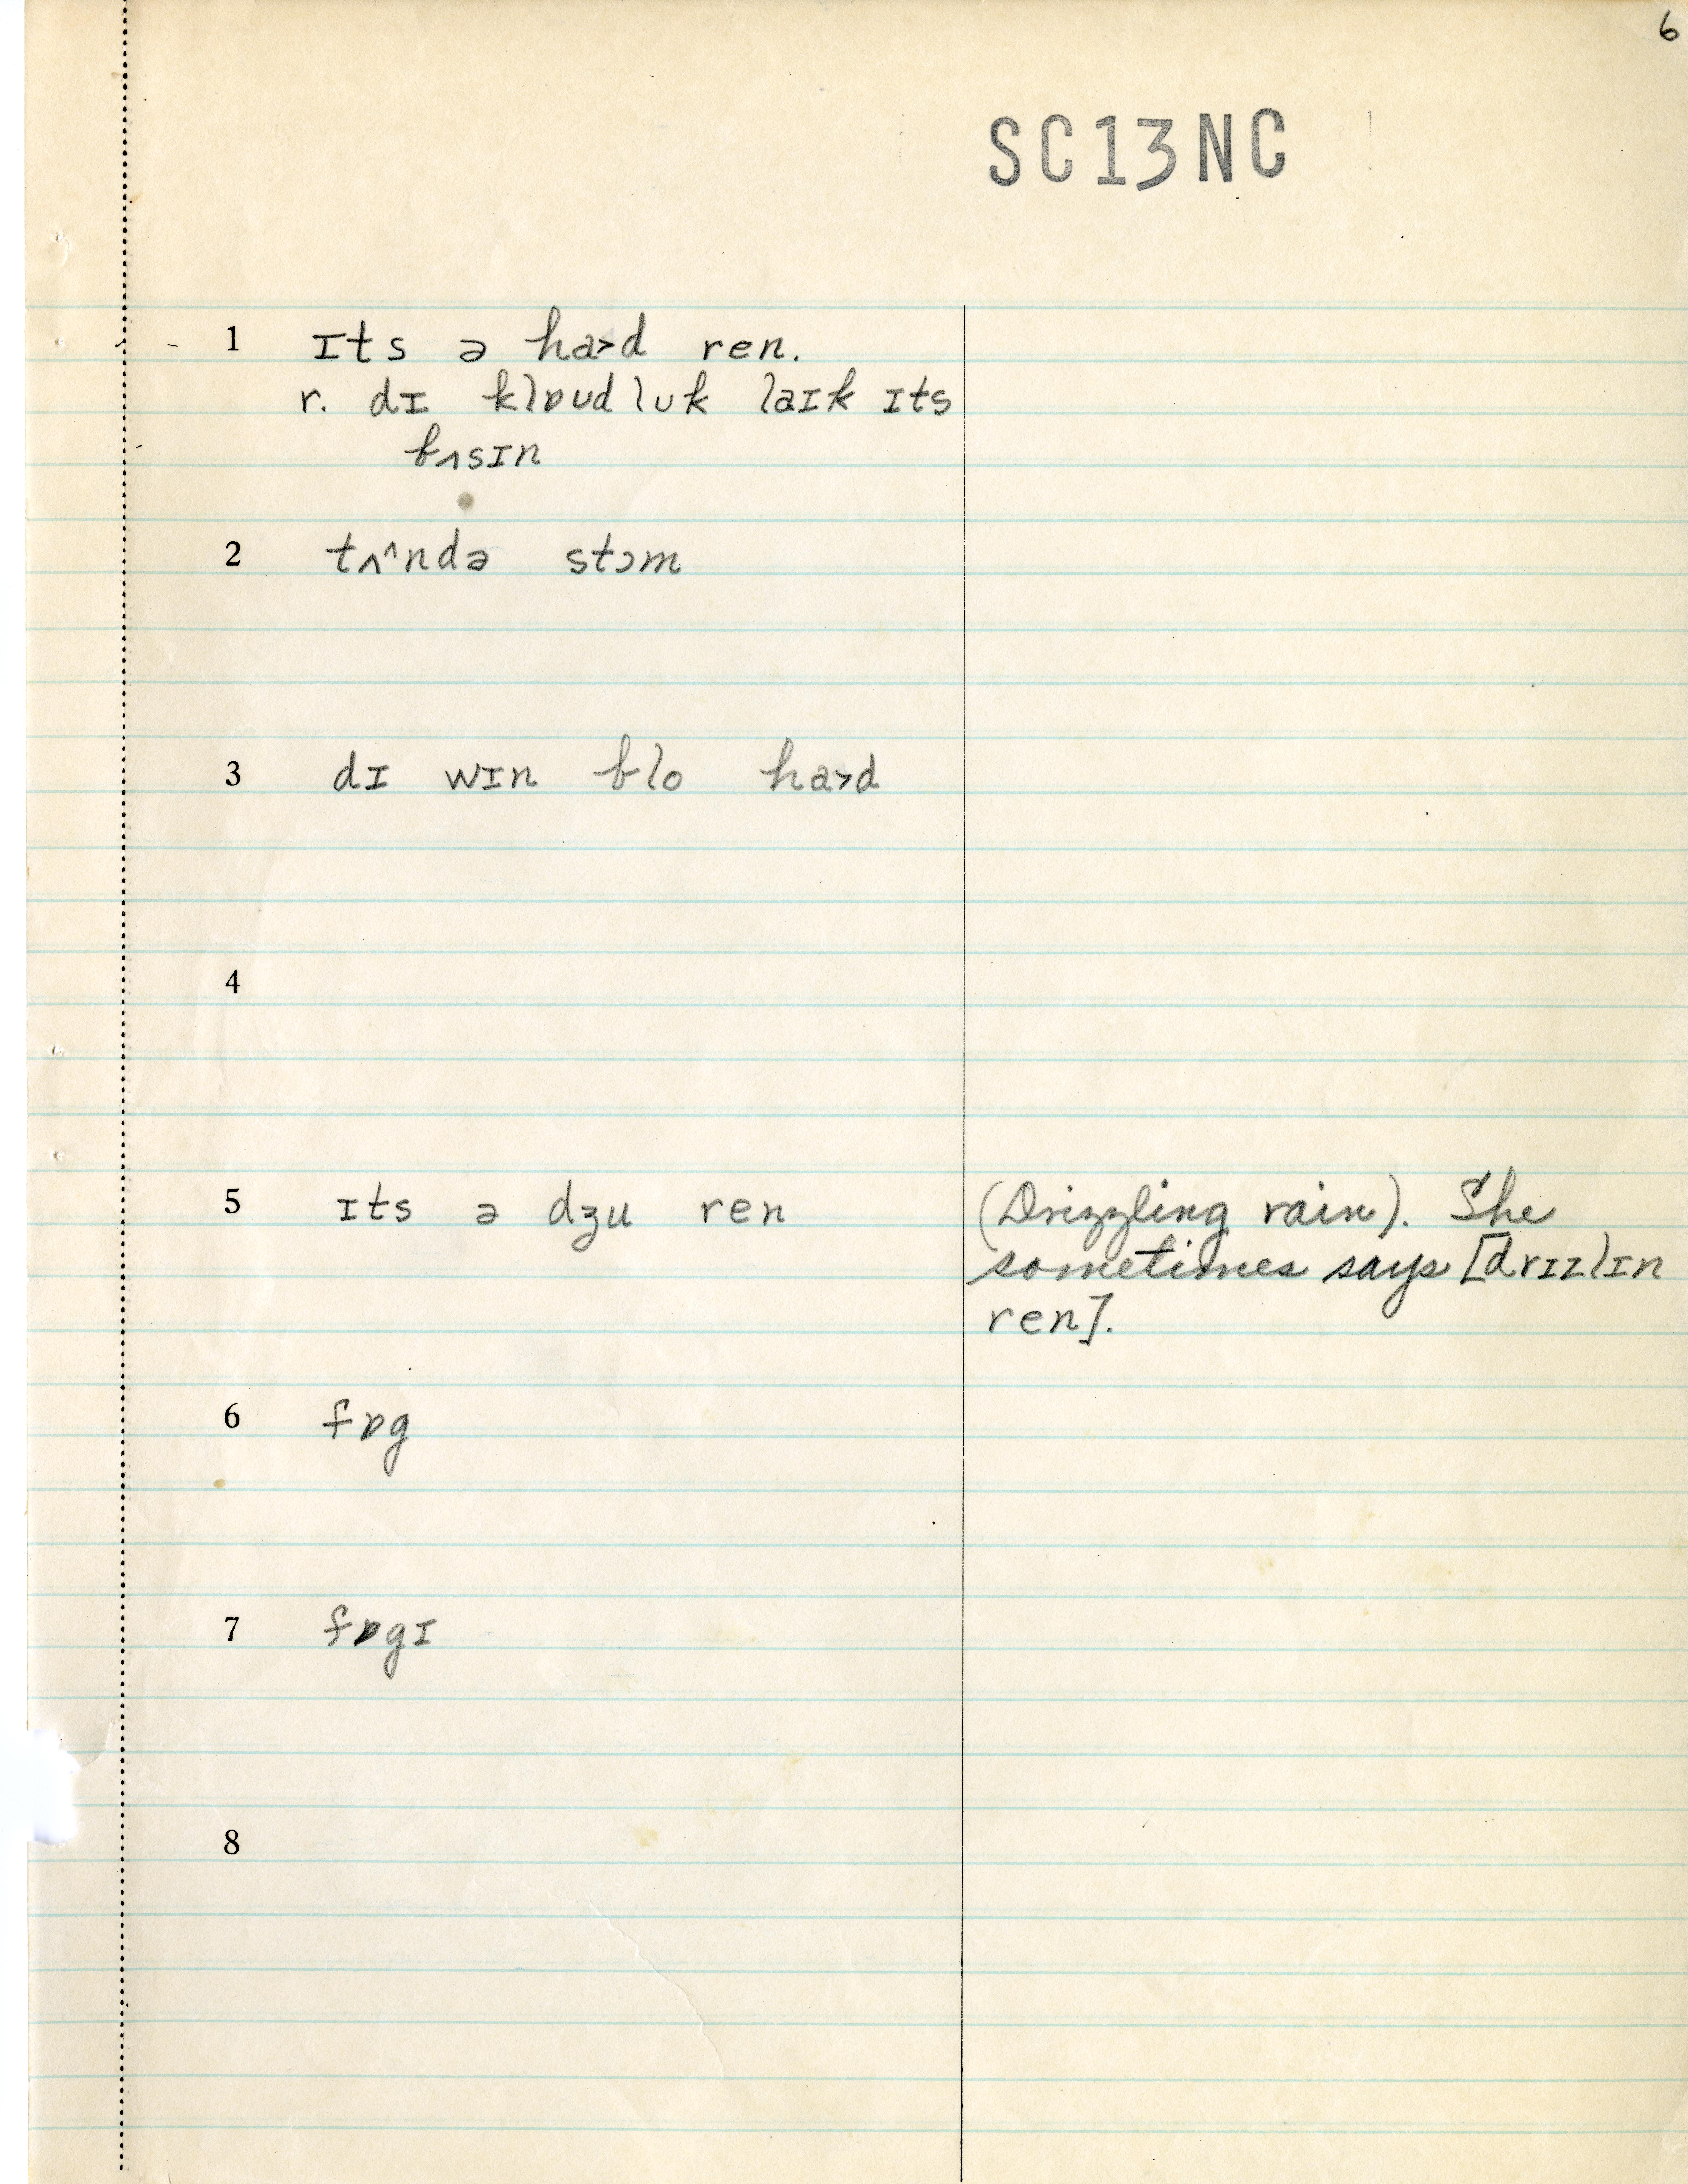 6
SC13NC
1 ɪts ə ha˃d ren.
r. dɪ klɒud luk laɪk ɪts
bʌsɪn
2 tʌ^ndə stɔm
3 dɪ wɪn blo ha˃d
4
5 ɪts ə dʒu ren (Drizzling rain). She
sometimes says [drɪzlɪn
ren].
6 fɒg
7 fɒgɪ
8